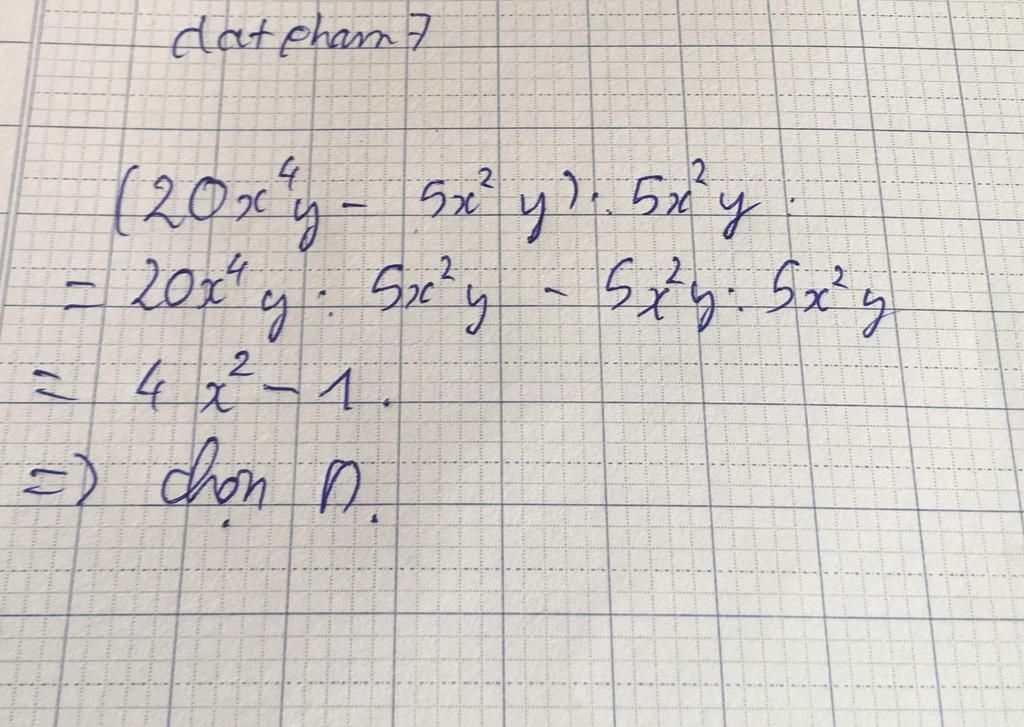 datpham7
(20x⁴y - 5x²y) : 5x²y.
= 20x⁴y : 5x²y - 5x²y : 5x²y
= 4x² - 1.
=> chọn D.